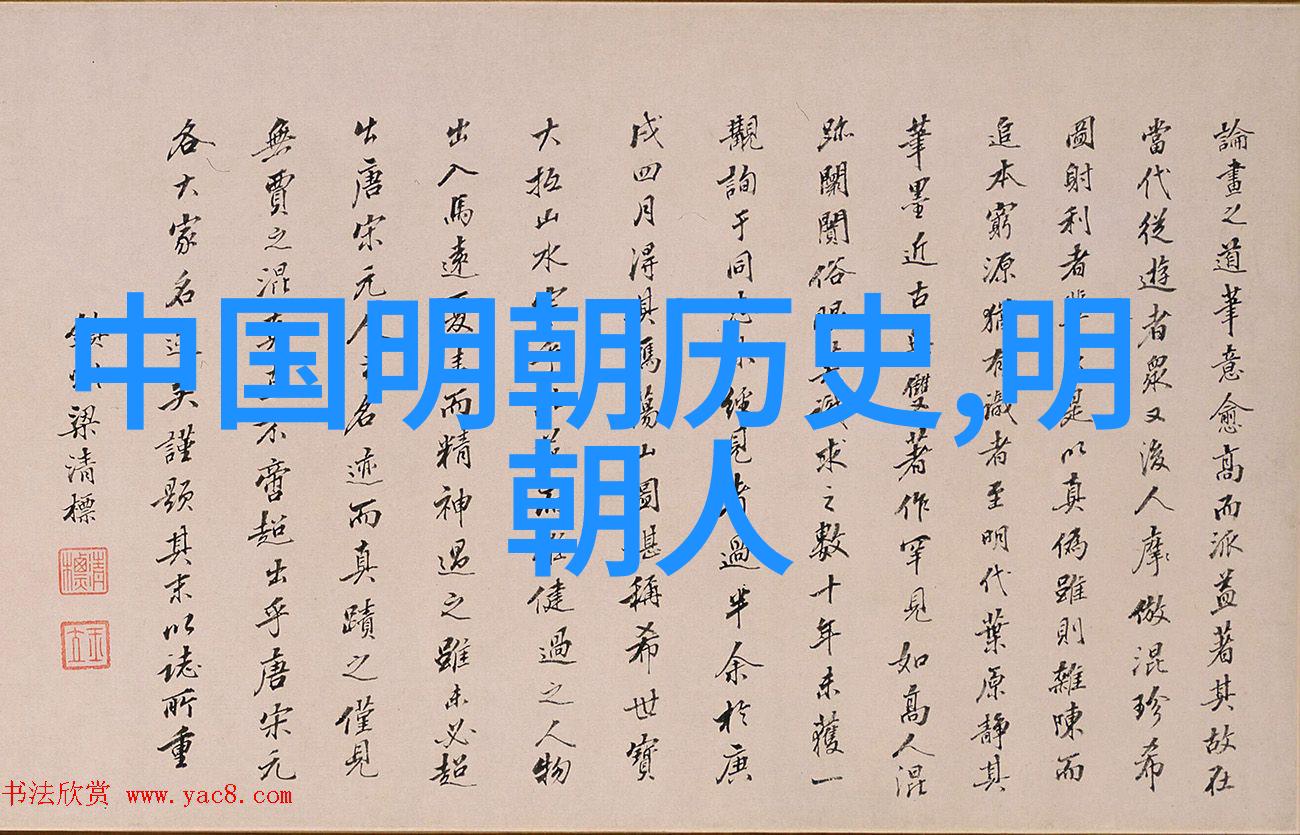 論畫之道筆意愈高而派益著其故在
當代從遊者衆又後人摩倣混珍希
圖射利者 是以真偽雖則雜陳而
追本窮源猶有識者至明代葉原靜其
筆墨近古 雙著作罕見如高人混
跡闤闠俗眼 求之數十年未獲一
觀詢于同 經見者過半余於庚
戌四月得其 山圖堪稱希世寶
大抵山水 健過之人物
出入馬遠夏 而精神過之雖未必超
出唐宋元人 名迹而真蹟之僅見
無賈之混 不啻超出乎唐宋元
各大家名 矣謹題其末以誌所重
梁清標
清標
玉立
中国明朝历史,明
朝人
书法欣赏 www.yac8.com